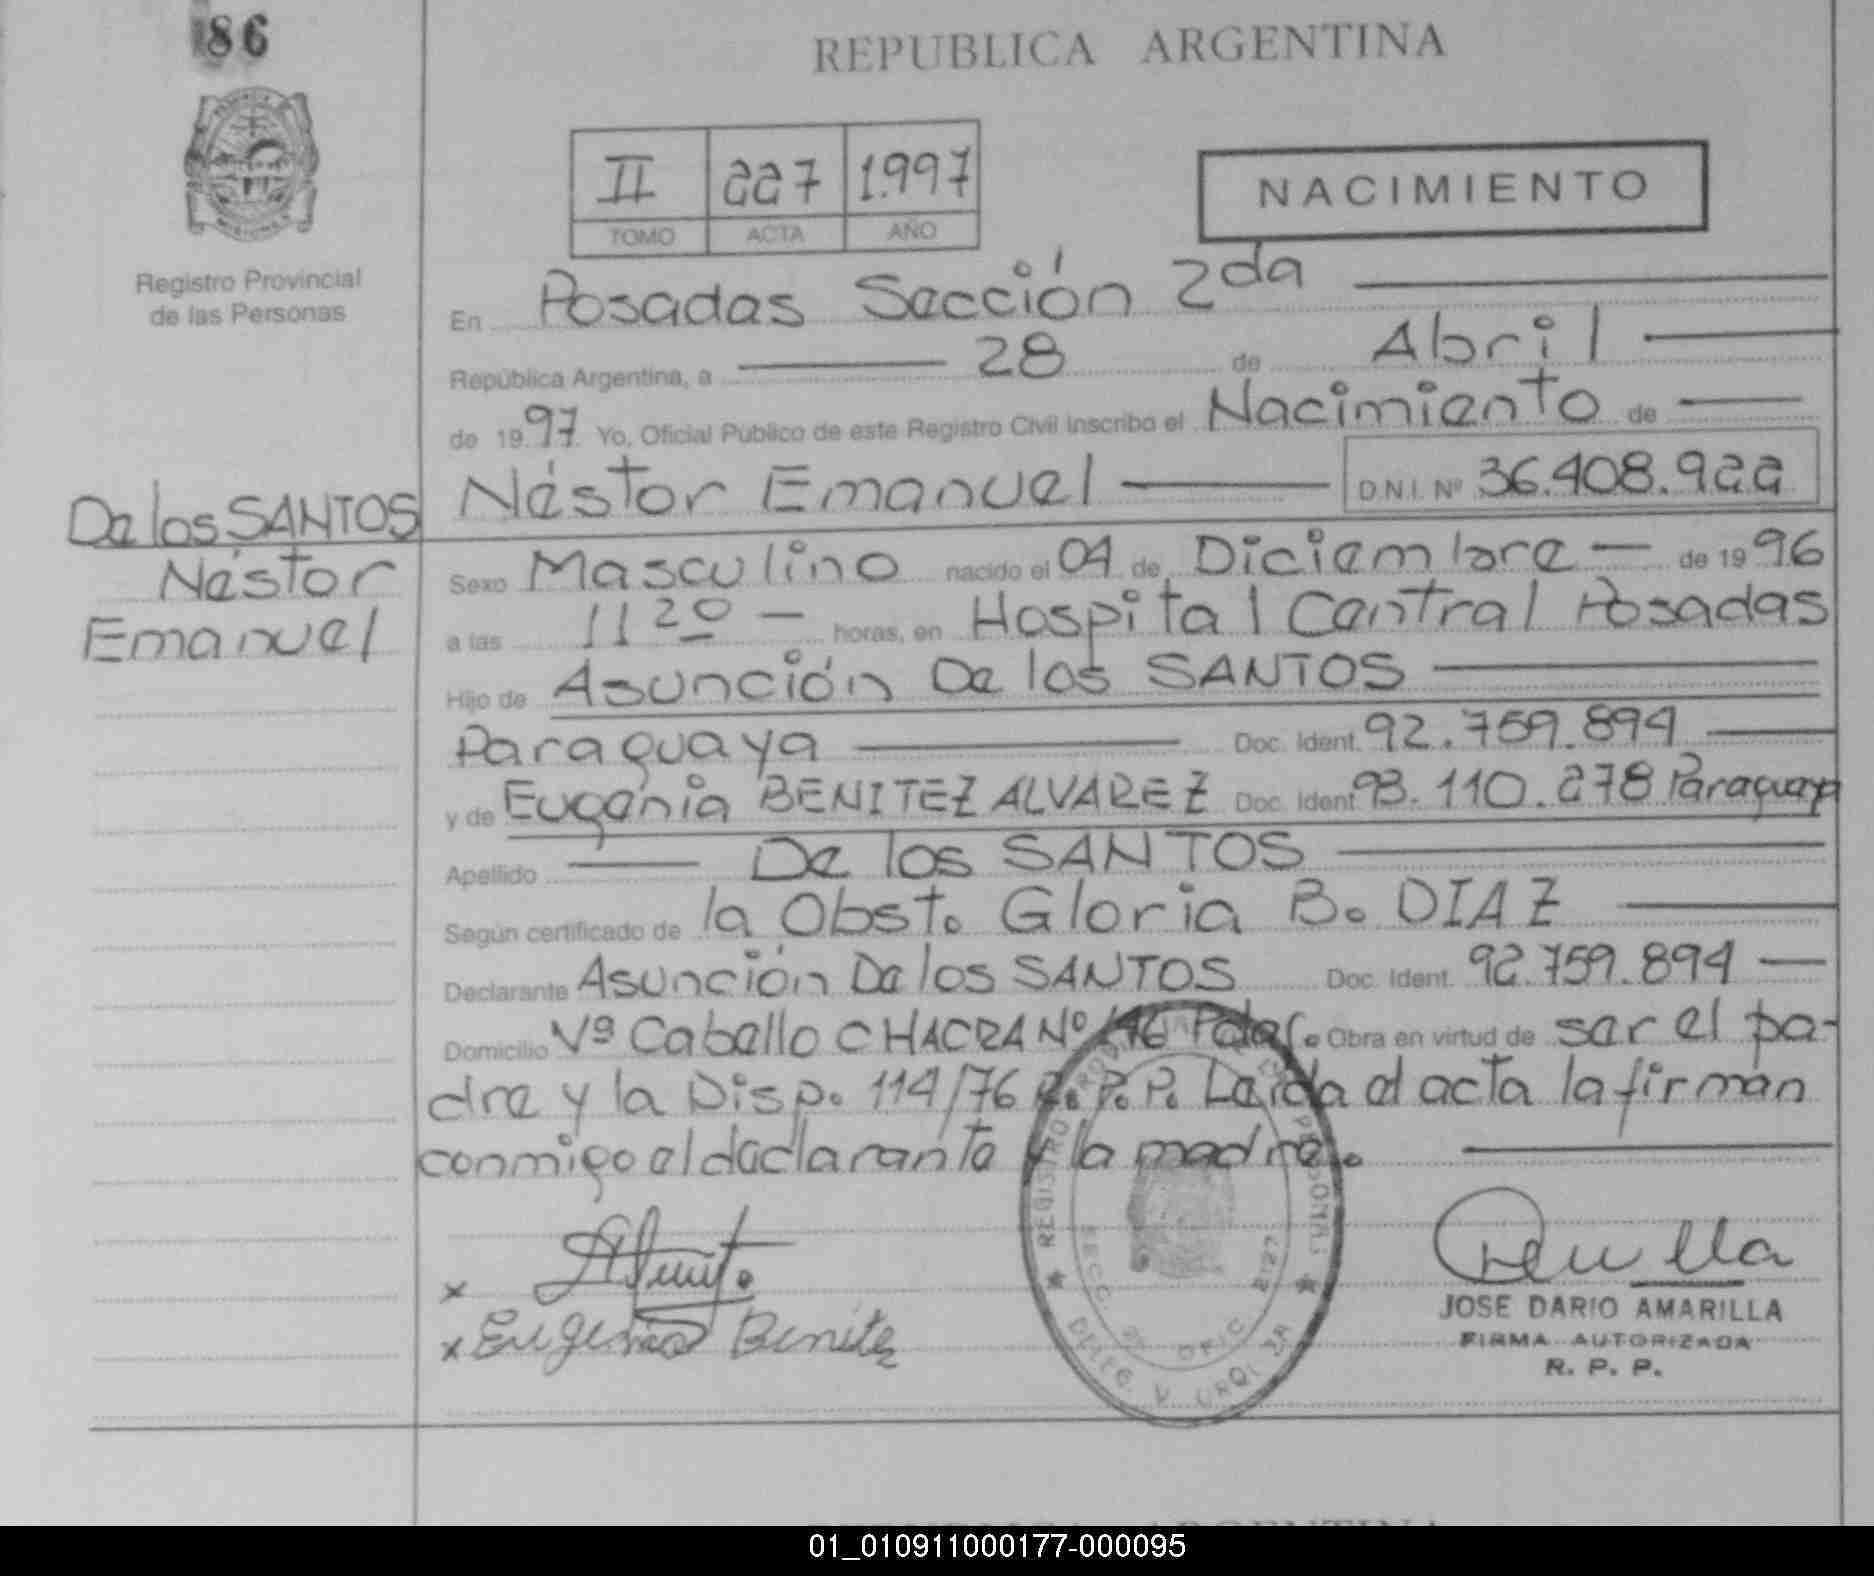 86
REPUBLICA ARGENTINA
II 227 1.997
TOMO ACTA AÑO
NACIMIENTO
Registro Provincial
de las Personas
En Posadas Sección 2da
República Argentina, a 28 de Abril
de 1997. Yo, Oficial Público de este Registro Civil inscribo el Nacimiento de
Néstor Emanuel D.N.I. Nº 36.408.922
De los SANTOS
Néstor
Emanuel
Sexo Masculino nacido el 04 de Diciembre de 1996
a las 11 20 horas, en Hospital Central Posadas
Hijo de Asunción De los SANTOS
Paraguaya Doc. Ident. 92.759.894
y de Eugenia BENITEZ ALVAREZ Doc. Ident. 93.110.278 Paraguaya
Apellido De los SANTOS
Según certificado de la Obst. Gloria B. DIAZ
Declarante Asunción De los SANTOS Doc. Ident. 92.759.894
Domicilio Vª Cabello CHACRA Nº 146 Obra en virtud de ser el pa-
dre y la Disp. 114/76 R.P.P. Leida el acta la firman
conmigo el declarante y la madre.
x
x Eugenia Benitez
REGISTRO PROVINCIAL DE LAS PERSONAS
SECC. 2a OFIC. 2127
JOSE DARIO AMARILLA
FIRMA AUTORIZADA
R. P. P.
01_010911000177-000095